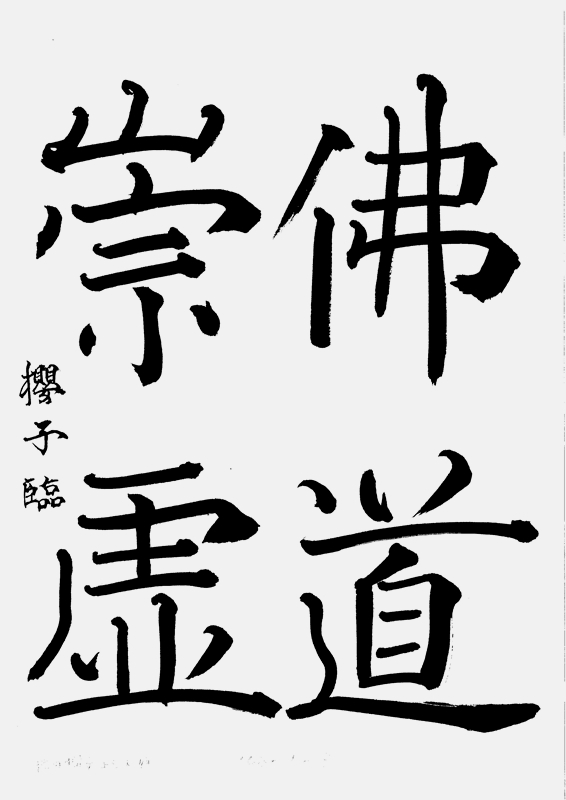 佛道
崇虛
櫻子臨